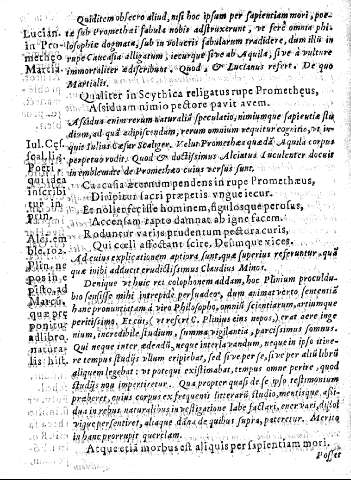 Quiditem obsecro aliud, nisi hoc ipsum per sapientiam mori, poe-
tæ sub Promethei fabula nobis adstruxerunt, vt ferè omnia phi-
losophiæ dogmata, sub inuolucris fabularum tradidere, dum illū in
rupe Caucasia alligatum, iecurque sibi ab Aquila, siue à vulture
immortaliter Quod, & Lucianus refert. De quo
Martialis.
Lucian.
in Pro-
metheo
Martia.
Qualiter in Scythica religatus rupe Prometheus,
Assiduam nimio pectore pauit auem.
Assidua enim rerum naturaliū speculatio, nimiumque sapientiæ stu
dium, ad quā adipiscendam, rerum omnium requitur cognitio, vt in-
quit Iulius Cæsar Scaliger. Velut Prometheus quædā Aquila corpus
perpetuò rodit. Quod & doctissimus Alciatus luculenter docuit
in emblemate de Prometheo cuius versus sunt.
Iul. Cęs.
scal. li.
Poeti.
qui idea
inscribi
tur in
prin.
Caucasia æternum pendens in rupe Prometheus,
Diripitur sacri præpetis vngue iecur.
Et nollet fecisse hominem, figulosque perosus,
Accensam rapto damnat ab igne facem.
Roduntur varijs prudentum pectora curis,
Qui cœli affectant scire, Deûmque vices.
Alci. em
ble. 102.
Ad cuius explicationem aptiora sunt, quæ superius referuntur, quã
quæ inibi adducit eruditissimus Claudius Minos.
Denique vt huic rei colophonem addam, hoc Plinium proculdu-
bio sensisse mihi intrepidè persuadeo, dum animat verto sententiā
hanc pronuntiatam à viro Philosopho, omniū scientiarum, artiumque
peritissimo. Et cui, (vt refert C. Plinius eius nepos,) erat acre inge
nium, incredibile studium, summa vigilantia, parcissimus somnus.
Qui neque inter ædendū, neque inter lauandum, neque in ipso itine-
re tempus studijs vllum eripiebat, sed siue per se, siue per aliū librū
aliquem legebat: vt potequi existimabat, tempus omne perire, quod
studijs non impertiretur. Qua propter quasi de se ipso testimonium
præberet, cuius corpus ex frequenti litterarū studio, mentisque assi-
dua in rebus naturalibus inuestigatione labefactari, eneruari, dissol
vique persentiret, atlaque dāna de quibus supra, pateretur. Meritò
in hanc prorrupit querelam.
Plin. ne
pos in e
pist. ad
Marcū.
que præ
ponitur
ad libro.
natura-
lis hist.
Atque etiā morbus est aliquis per sapientiam mori.
Posset